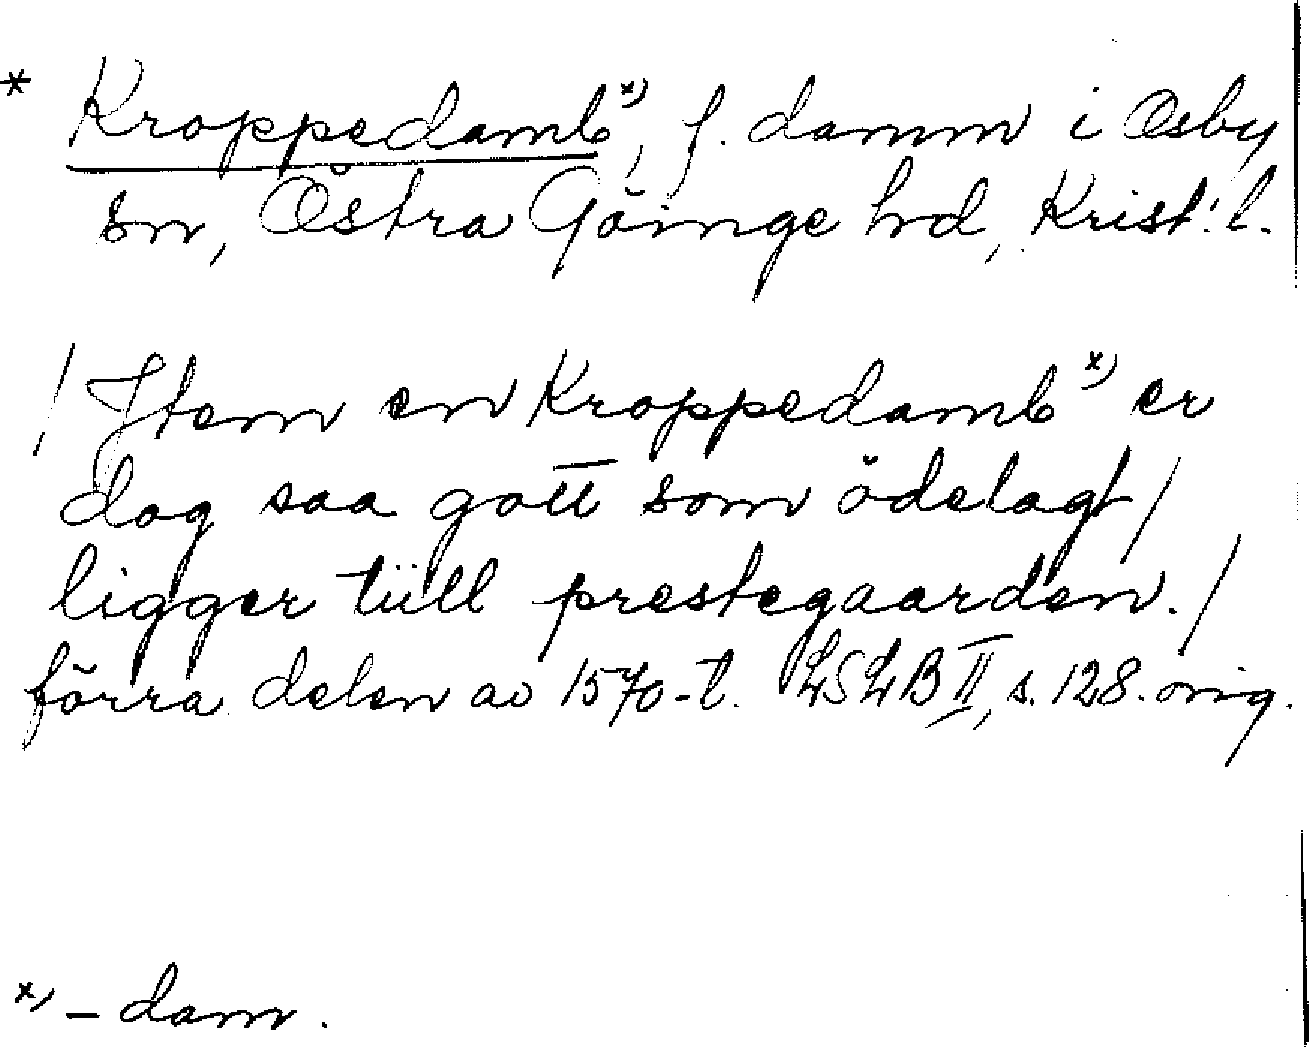 * Kroppedamb x), f. damm i Osby
sn, Östra Göinge hrd, Krist:l.
/ Jtem en Kroppedamb x) er
dog saa gott som ödelagt /
ligger tüll prestegaarden. /
förra delen av 1570-t. LSLB II, s. 128. orig.
x) – dam.